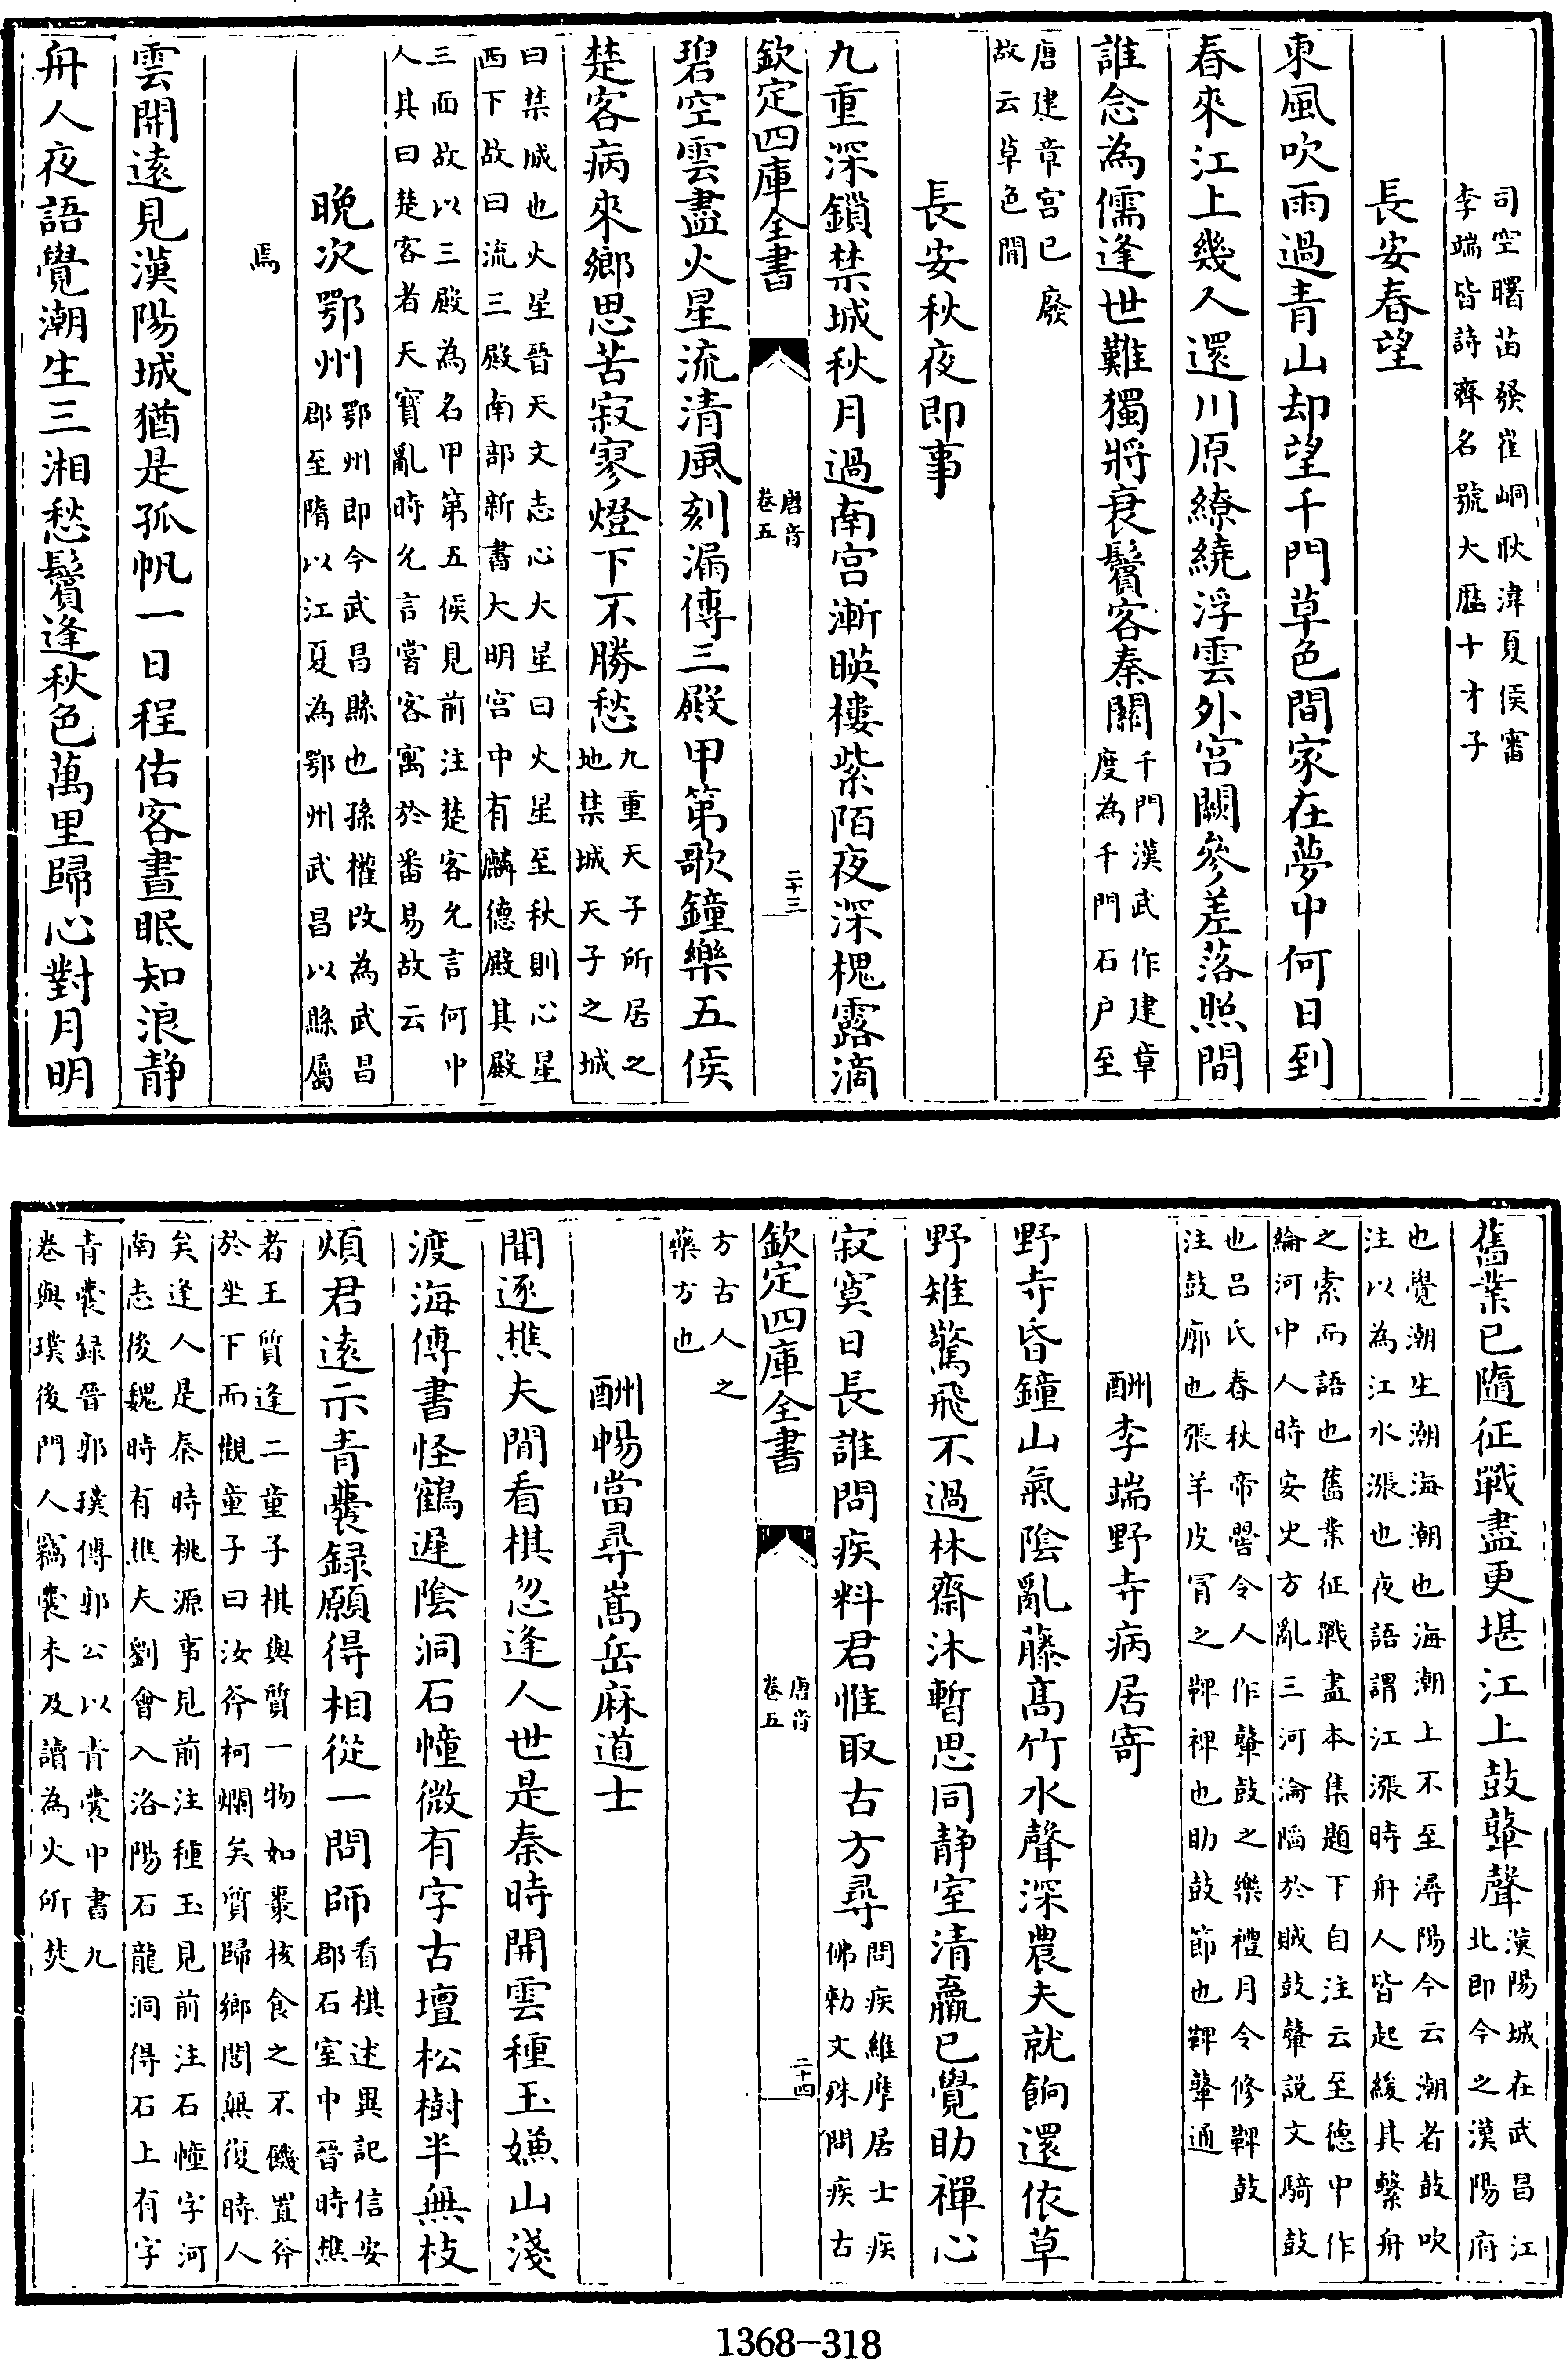 司空曙苗發崔峒耿湋夏侯審
李端皆詩齊名號大厯十才子
長安春望
東風吹雨過青山却望千門草色間家在夢中何日到
春來江上幾人還川原繚繞浮雲外宫闕參差落照間
誰念為儒逢世難獨將衰鬢客秦關
千門漢武作建章
度為千門石户至
唐建章宫已廢
故云草色閒
長安秋夜即事
九重深鎖禁城秋月過南宫漸暎樓紫陌夜深槐露滴
欽定四庫全書
唐音
卷五
二十三
碧空雲盡火星流清風刻漏傳三殿甲第歌鐘樂五侯
楚客病來鄉思苦寂寥燈下不勝愁
九重天子所居之
地禁城天子之城
曰禁城也火星晉天文志心大星曰火星至秋則心星
西下故曰流三殿南部新書大明宫中有麟德殿其殿
三面故以三殿為名甲第五侯見前注楚客允言何中
人其曰楚客者天寶亂時允言嘗客寓於番易故云
晚次鄂州
鄂州即今武昌縣也孫權改為武昌
郡至隋以江夏為鄂州武昌以縣屬
焉
雲開遠見漢陽城猶是孤帆一日程估客晝眠知浪静
舟人夜語覺潮生三湘愁鬢逢秋色萬里歸心對月明
舊業已隨征戰盡更堪江上鼓鼙聲
漢陽城在武昌江
北即今之漢陽府
也覺潮生潮海潮也海潮上不至潯陽今云潮者鼓吹
注以為江水漲也夜語謂江漲時舟人皆起緩其繫舟
之索而語也舊業征戰盡本集題下自注云至德中作
綸河中人時安史方亂三河淪陷於賊鼓鼙説文騎鼓
也吕氏春秋帝嚳令人作鼙鼓之樂禮月令修鞞鼓
注鼓廓也張羊皮冐之鞞裨也助鼓節也鞞鼙通
酬李端野寺病居寄
野寺昏鐘山氣陰亂藤髙竹水聲深農夫就餉還依草
野雉驚飛不過林齋沐暫思同静室清羸已覺助禪心
寂寞日長誰問疾料君惟取古方尋
問疾維摩居士疾
佛勅文殊問疾古
欽定四庫全書
唐音
卷五
二十四
方古人之
藥方也
酬暢當尋嵩岳麻道士
聞逐樵夫閒看棋忽逢人世是秦時開雲種玉嫌山淺
渡海傳書怪鶴遲陰洞石幢微有字古壇松樹半無枝
煩君遠示青囊録願得相從一問師
看棋述異記信安
郡石室中晉時樵
者王質逢二童子棋與質一物如棗核食之不饑置斧
於坐下而觀童子曰汝斧柯爛矣質歸鄉閭無復時人
矣逢人是秦時桃源事見前注種玉見前注石幢字河
南志後魏時有樵夫劉會入洛陽石龍洞得石上有字
青囊録晉郭璞傳郭公以青囊中書九
卷與璞後門人竊囊未及讀為火所焚
1368-318